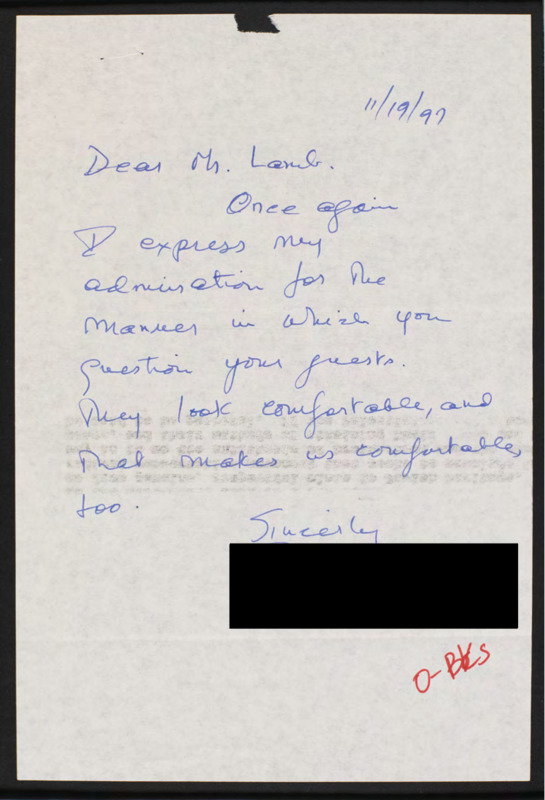 11/19/97
Dear Mr. Lamb.
Once again
I express my
admiration for the
manner in which you
question your guests.
They look comfortable, and
that makes us comfortable,
too.
Sincerly
O-BKS